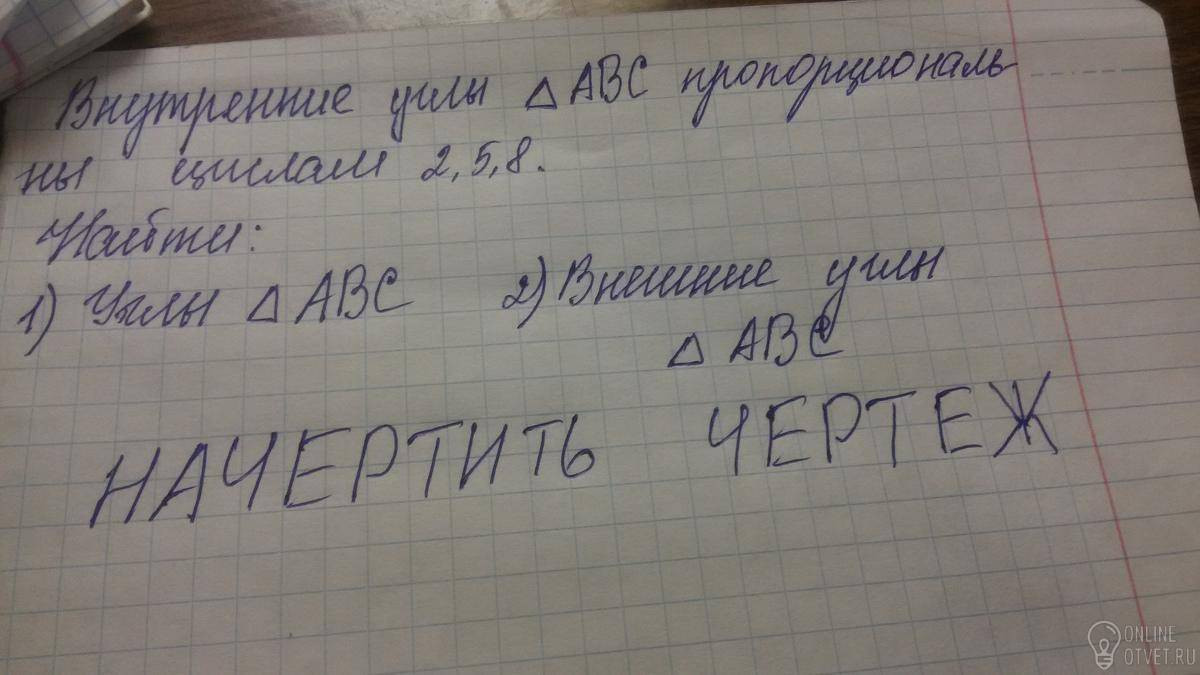 Внутренние углы △ ABC пропорциональ-
ны числам 2, 5, 8.
Найти:
1) Углы △ ABC 2) Внешние углы
△ ABC
НАЧЕРТИТЬ ЧЕРТЕЖ
ONLINE
OTVET.RU